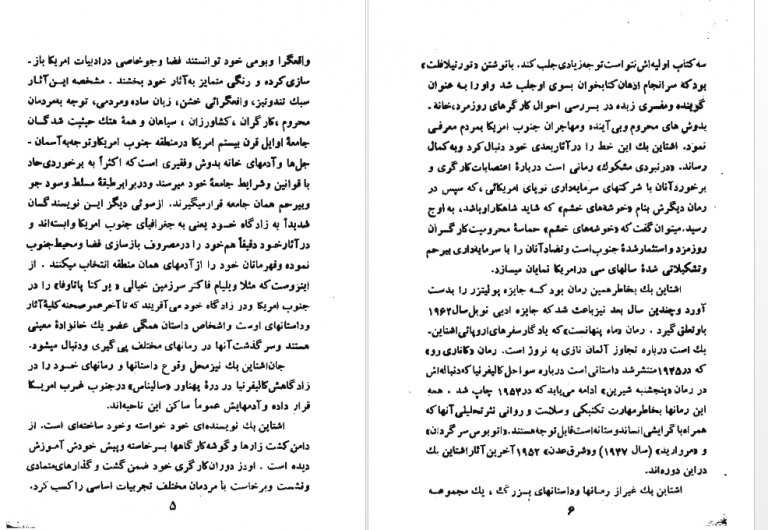 واقعگرا وبومی خود توانستند فضا وجوخاصی درادبیات امریکا باز ـ
سازی کرده و رنگی متمایز به آثار خود بخشند . مشخصه ایـن آثـار
سبك تندوتیز، واقعگرائی خشن، زبان ساده ومردمی، توجه به مردمان
محروم ،کارگران ،کشاورزان ، سیاهان و همهٔ هتك حیثیت شدگـان
جامعهٔ اوایل قرن بیستم امریکا درمنطقه جنوب امریکاوتوجه به آسمان ـ
جل‌ها وآدمهای خانه بدوش وفقیری است که اکثراً به برخوردی حاد
با قوانین وشرایط جامعهٔ خود میرسند ودربرابرطبقهٔ مسلط وسود جو
وبیرحم همان جامعه قرارمیگیرند. ازسوئی دیگر ایـن نویسندگـان
شدیداً به زادگاه خـود یعنی به جغرافیای جنوب امریکا وابسته‌اند و
در آثارخـود دقیقاً هم خود را درمصروف بازسازی فضا ومحیط جنوب
نموده وقهرمانان خود را ازآدمهای همان منطقه انتخاب میکنند . از
اینروست که مثلا ویلیام فاکنر سرزمین خیالی « یوکنا پاتاوفا» را در
جنوب امریکا ودر زادگاه خود می‌آفریند که تا آخرعمرصحنه کلیهٔ آثار
وداستانهای اوست واشخاص داستان همگی عضو یك خانوادهٔ معینی
هستند وسرگذشت آنها در رمانهای مختلف پی‌گیری ودنبال میشود.
جان‌اشتاین بك نیزمحل وقوع داستانها و رمانهای خـود را در
زادگاهش کالیفرنیا در درهٔ پهناور «سالیناس» درجنوب غـرب امریـکا
قرار داده وآدمهایش عموماً ساکن این ناحیه‌اند.
اشتاین بك نویسنده‌ای خود خواسته وخود ساخته‌ای است. از
دامن کشت زارها وگوشه کارگاهها برخاسته وپیش خودش آموزش
دیده است . اودر دوران کارگری خود ضمن گشت و گذارهای متمادی
ونشست وبرخاست با مردمان مختلف تجربیات اساسی را کسب کرد.
۵
سه کتاب اولیه‌اش نتوانست توجه زیادی جلب کند. با نوشتن «تورتیلافلت»
بود که سرانجام اذهان کتابخوان بسوی اوجلب شد واورا به عنوان
گوینده ومفسری زبده در بـررسی احوال کارگرهای روزمزد،خانه ـ
بدوش های محروم وبی‌آینده ومهاجران جنوب امریکا بمردم معرفـی
نمود. اشتاین بك این خط را درآثاربعدی خود دنبال کرد وبه کمال
رساند. «درنبردی مشکوك» رمانی است دربارهٔ اعتصابات کارگری و
برخوردآنان با شرکتهای سرمایه‌داری نوپای امریکائی،که سپس در
رمان دیگرش بنام «خوشه‌های خشم» که شاید شاهکار اوباشد، به اوج
رسید.میتوان گفت که «خوشه‌های خشم» حماسهٔ محرومیت کارگـران
روزمزد واستثمارشدهٔ جنوب است وتضادآنان را با سرمایه‌داری بیرحم
وتشکیلاتی شدهٔ سالهای سی درامریکا نمایان میسازد.
اشتاین بك بخاطرهمین رمان بود کـه جایزه پولیتزر را بدست
آورد وچندین سال بعد نیزباعث شدکه جایزه ادبی نوبل سال ۱۹۶۲
باوتعلق گیرد . رمان «ماه پنهانست» که یادگار سفرهای اروپائی اشتاین‌ـ
بك است درباره تجاوز آلمان نازی به نروژ است. رمان «کاناری رو»
که در۱۹۴۵منتشرشد داستانی است درباره سواحل کالیفرنیا که دنباله‌اش
در رمان «پنجشنبه شیرین» ادامه می‌یابد که در۱۹۵۳ چاپ شد . همه
این رمانها بخاطر مهارت تکنیکی وسلامت و روانی نثر تحلیلی آنها که
همراه با گرایشی انساندوستانه است قابل توجه هستند.«اتوبوس سرگردان»
و «مروارید» (سال ۱۹۴۷) و«شرق عدن» ۱۹۵۲ آخرین آثار اشتاین بك
در این دوره‌اند.
اشتاین بك غیر از رمانها وداستانهای بـزرگ ، یك مجموعـه
۶